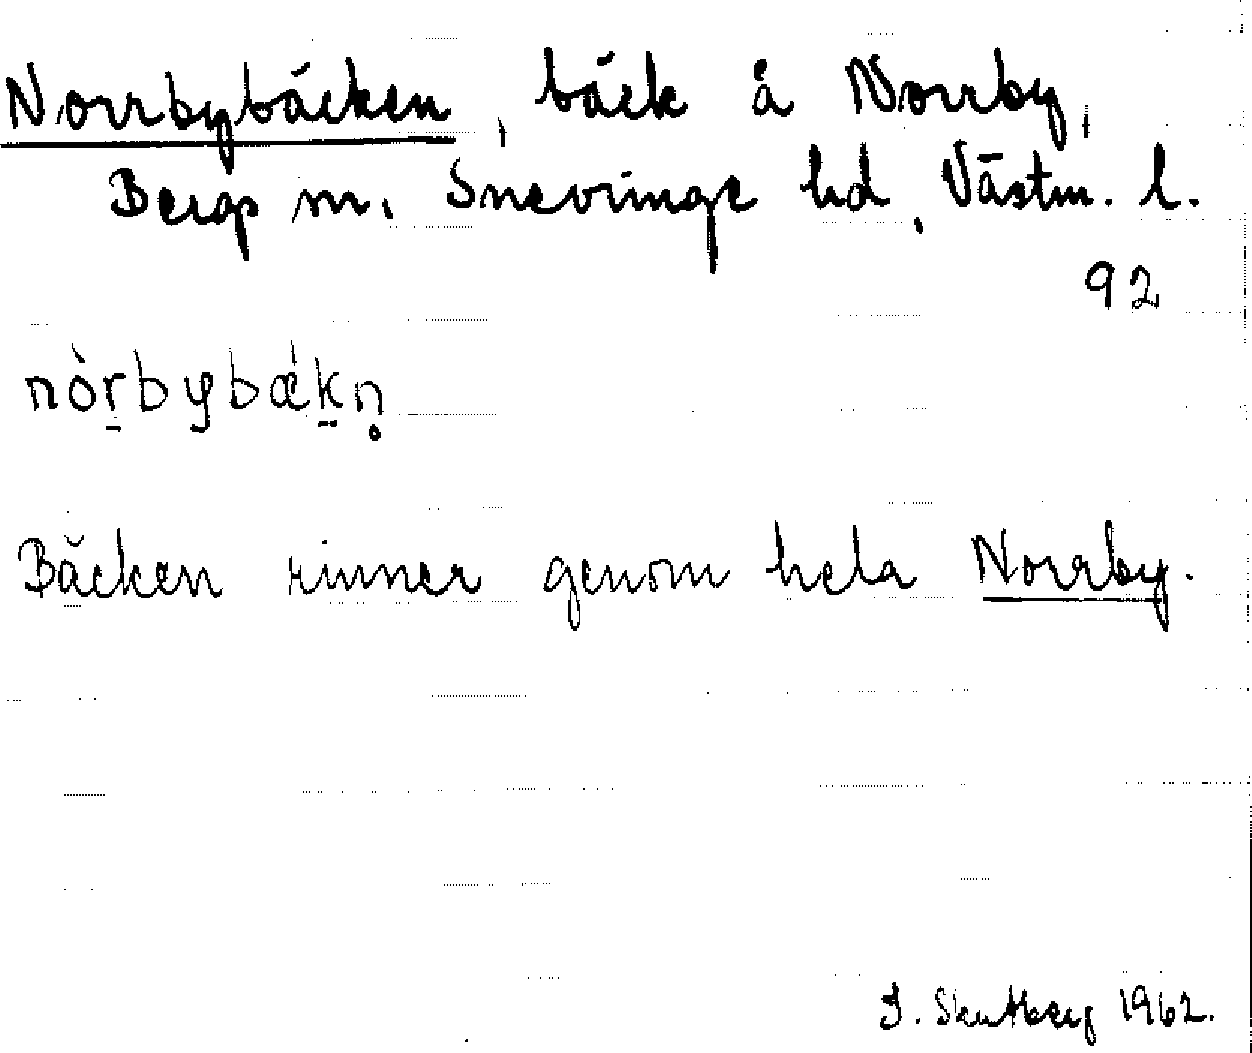 Norrbybäcken, bäck å Norrby,
Bergs sn, Snevringe hd, Västm. l.
92
nòr̠byb​ǽk̠n̥
Bäcken rinner genom hela Norrby.
I. Skutberg 1962.